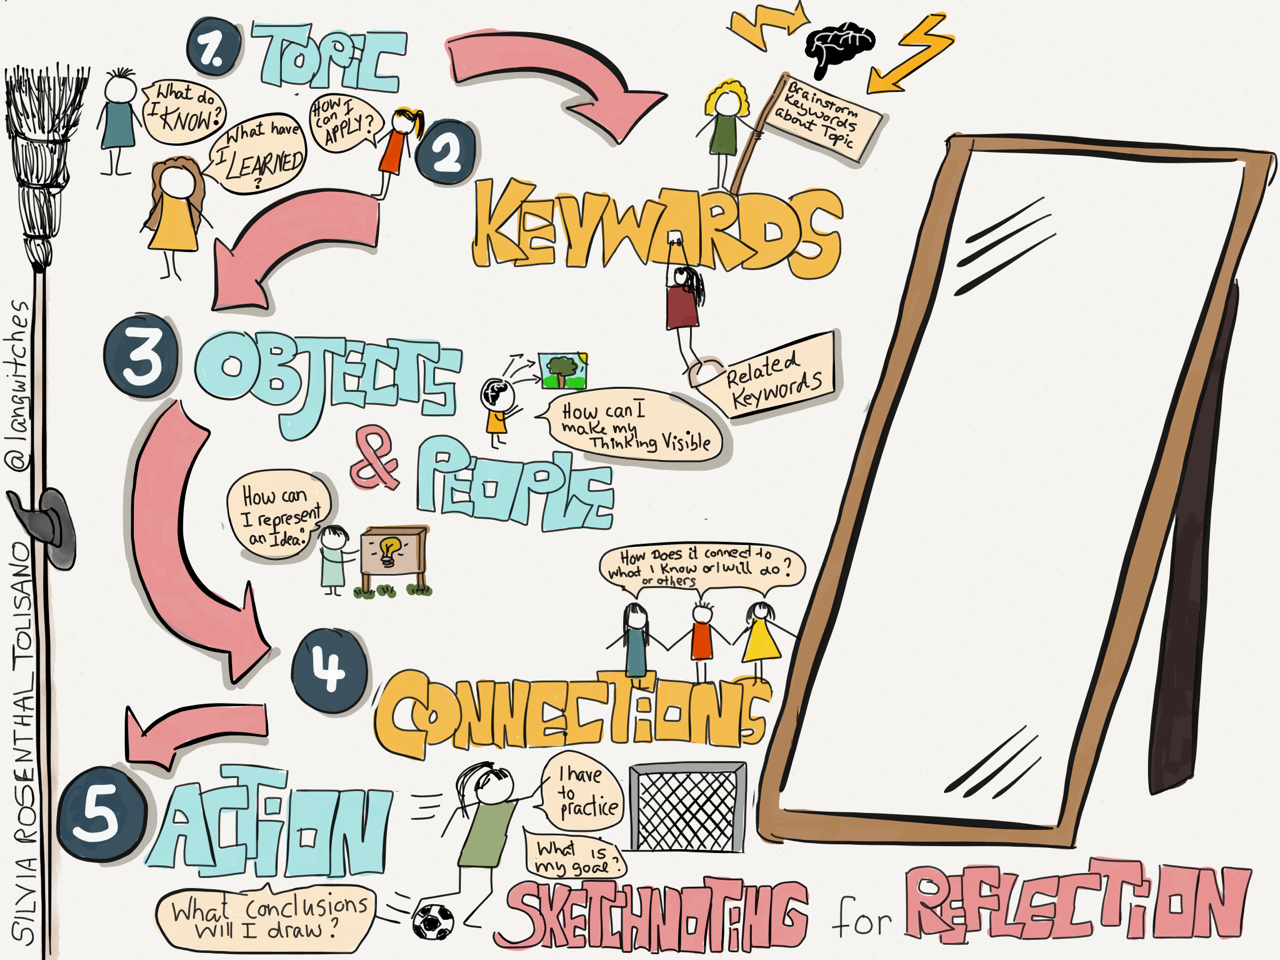 1.
TOPiC
What do
I KNOW?
What have
I LEARNED
?
HOW
can I
APPLY?
2
Brainstorm
Keywords
about Topic
KEYWARDS
Related
Keywords
3
OBJECTS
& PEOPLE
How can I
make my
Thinking Visible
How can
I represent
an Idea?
How Does it connect to
what I Know or I will do?
or others
4
CONNECTIONS
5
ACTiON
What Conclusions
will I draw?
I have
to
practice
What is
my goal?
SKETCHNOTiNG for REFLECTiON
SILVIA ROSENTHAL TOLISANO @langwitches